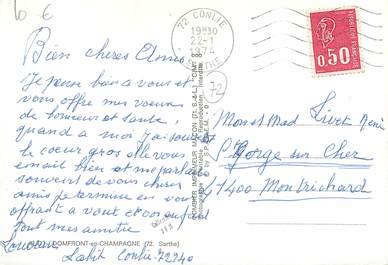 10 €
Bien chères Amies
Je pense bien a vous et
vous offre mes voeux
de bonheur et santé,
quand a moi j'ai toujours
le coeur gros elle vous
aimait bien et me parlait
souvent de vous chers
amis je termine en vous
offrant a vous et
tout mes amitié
Souvenir
Labit Conlie 72240
DOMFRONT-en-CHAMPAGNE (72. Sarthe)
COMBIER IMPRIMEUR MACON (71.S.&-L.) "CIM"
Reproduction interdite
72 CONLIE
19H30
22-1
1974
SARTHE
72
REPUBLIQUE FRANÇAISE
0,50
Mons et Mad Livet René
St Gorge sur Cher
41400 Montrichard